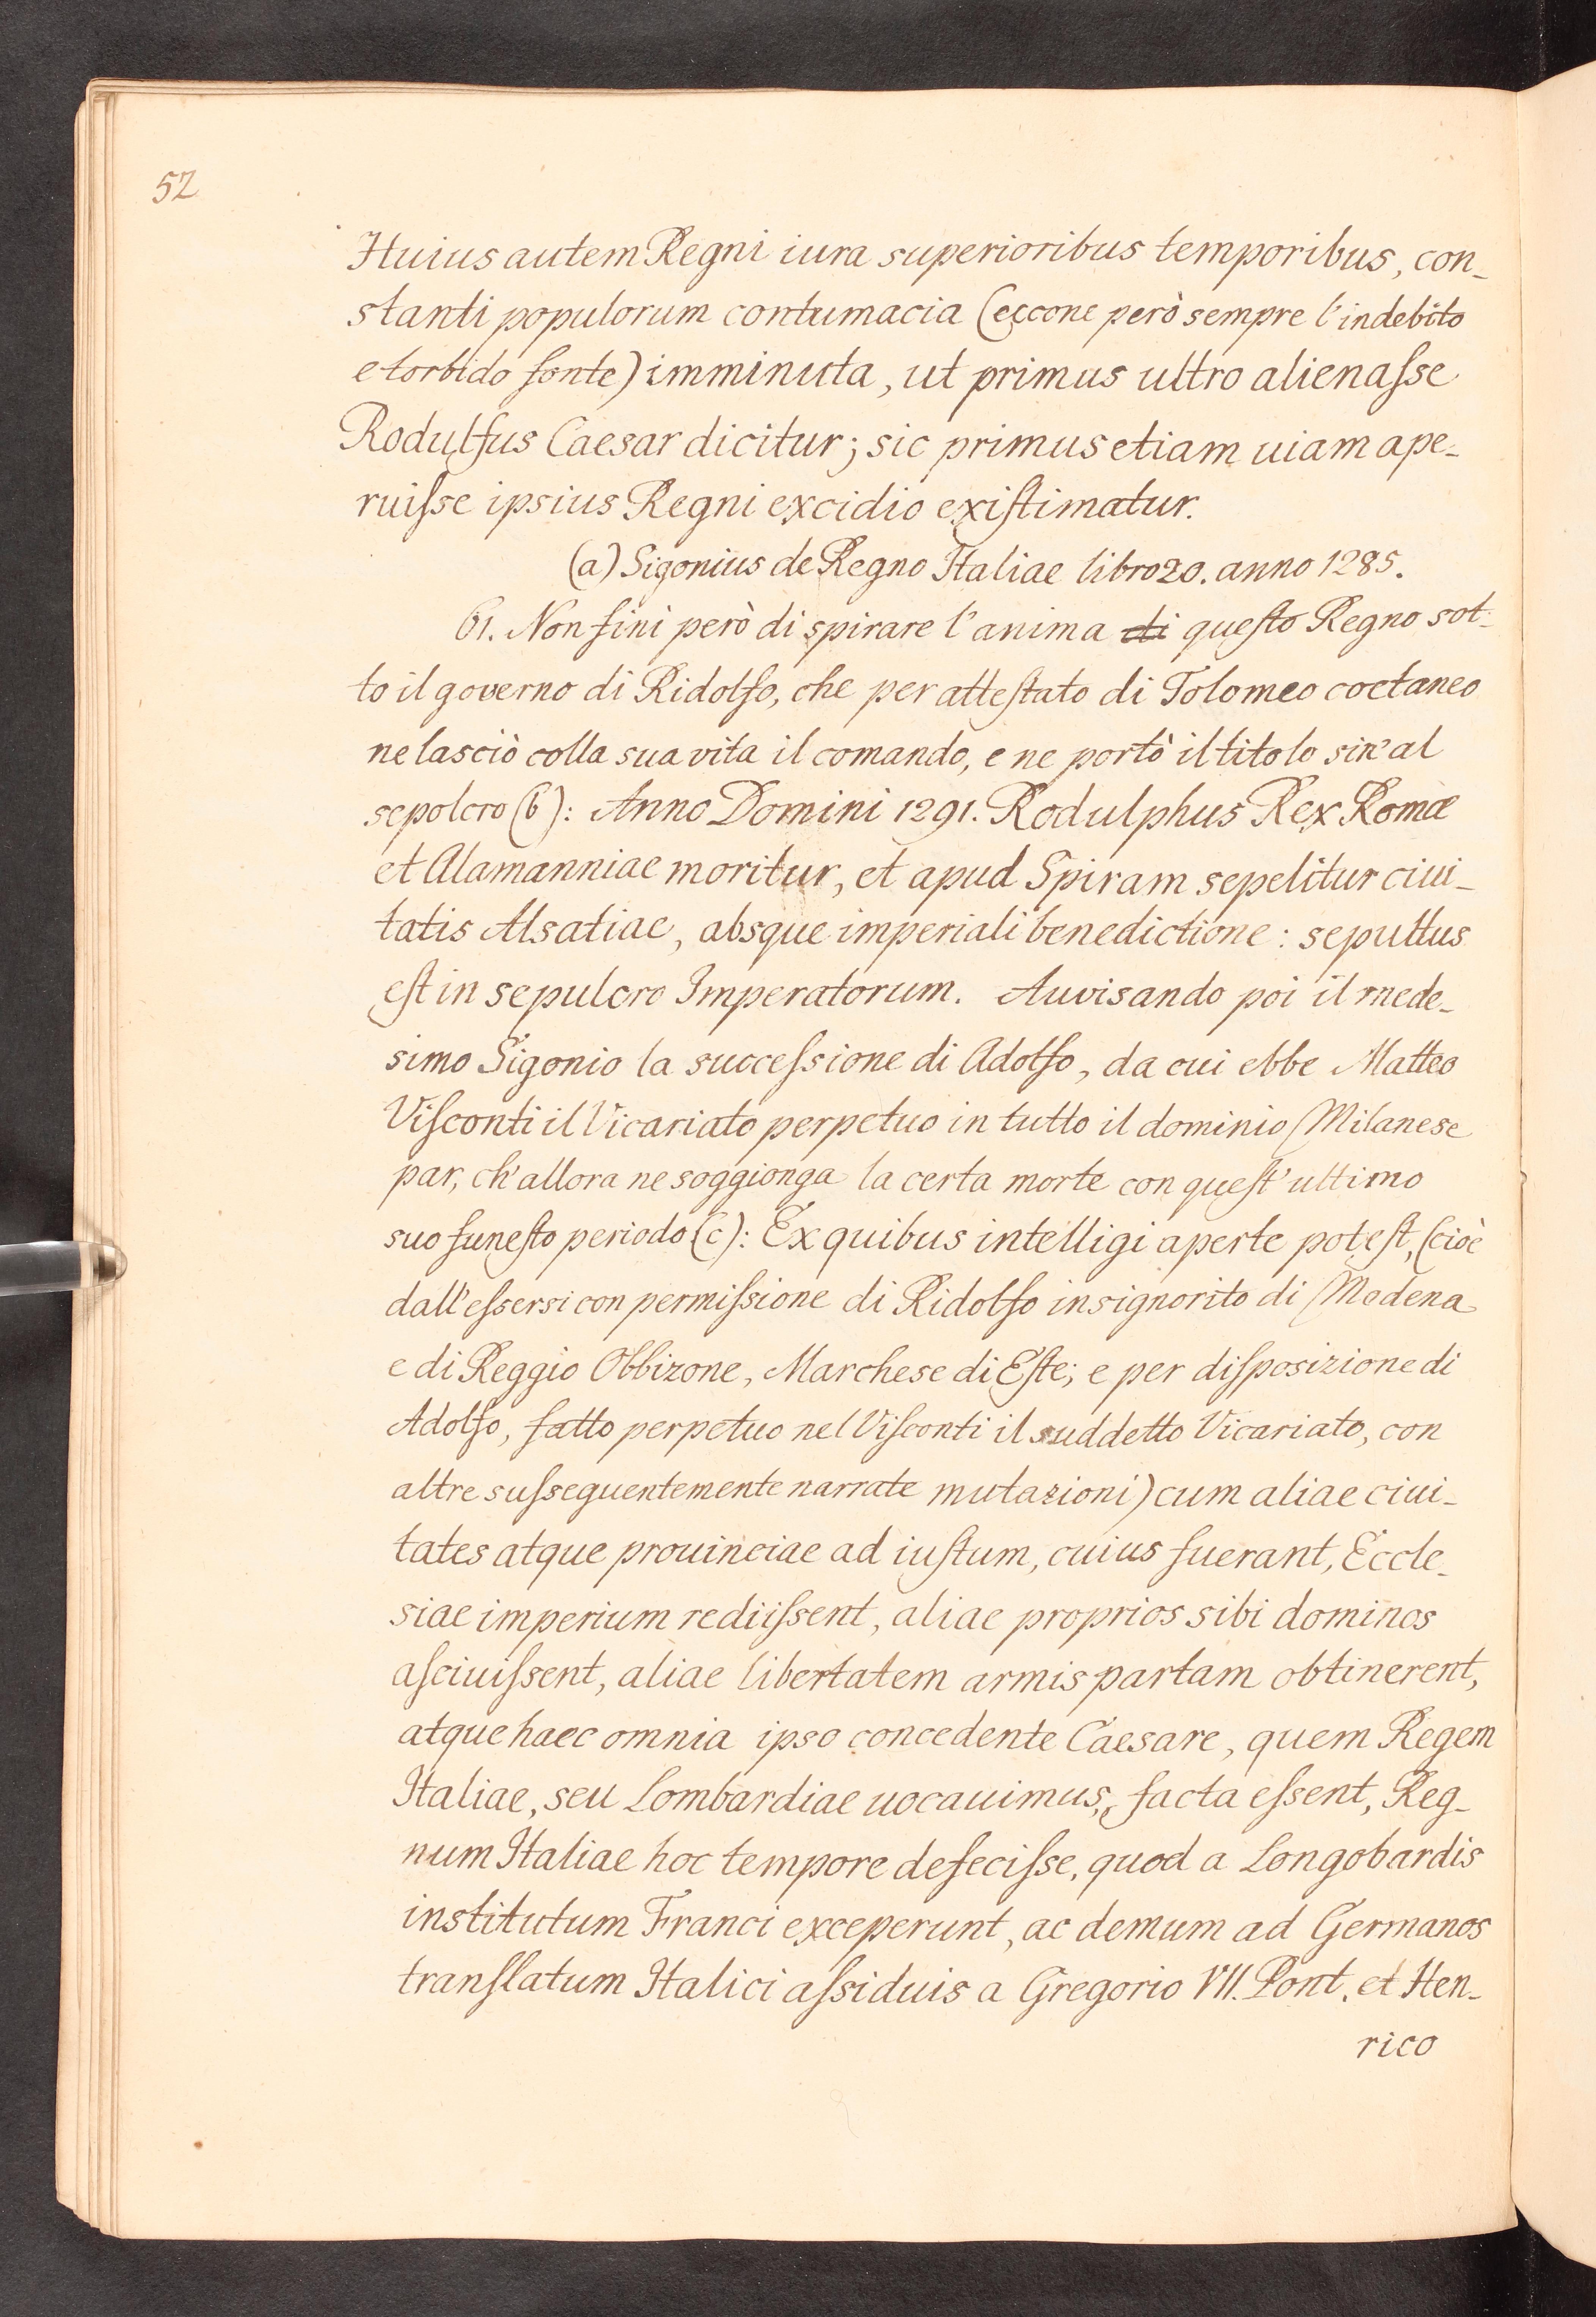 52
Huius autem Regni iura superioribus temporibus, con_
stanti populorum contumacia (eccone però sempre l'indebito
e torbido fonte) imminuta, ut primus ultro alienaſse
Rodulfus Caesar dicitur; sic primus etiam uiam ape_
ruiſse ipsius Regni excidio exiſtimatur.
(a) Sigonius de Regno Italiae libro 20. anno 1285.
61. Non finì però di spirare l'anima di queſto Regno sot_
to il governo di Ridolfo, che per atteſtato di Tolomeo coetaneo
ne lasciò colla sua vita il comando, e ne portò il titolo sin'al
sepolcro (b): Anno Domini 1291. Rodulphus Rex Romæ
et Alamanniae moritur, et apud Spiram sepelitur ciui_
tatis Alsatiae, absque imperiali benedictione: sepultus
eſt in sepulcro Imperatorum. Auvisando poi il mede_
simo Sigonio la succeſsione di Adolfo, da cui ebbe Matteo
Viſconti il Vicariato perpetuo in tutto il dominio Milanese
par, ch'allora ne soggionga la certa morte con queſt'ultimo
suo funeſto periodo (c): Ex quibus intelligi aperte poteſt, (cioè
dall'eſsersi con permiſsione di Ridolfo insignorito di Modena
e di Reggio Obbizone, Marchese di Eſte; e per diſposizione di
Adolfo, fatto perpetuo nel Viſconti il suddetto Vicariato, con
altre suſseguentemente narrate mutazioni) cum aliae ciui_
tates atque prouinciae ad iuſtum, cuius fuerant, Eccle_
siae imperium rediiſsent, aliae proprios sibi dominos
aſciuiſsent, aliae libertatem armis partam obtinerent,
atque haec omnia ipso concedente Caesare, quem Regem
Italiae, seu Lombardiae uocauimus, facta eſsent, Reg_
num Italiae hoc tempore defeciſse, quod a Longobardis
institutum Franci exceperunt, ac demum ad Germanos
tranſlatum Italici aſsiduis a Gregorio VII. Pont. et Hen_
rico